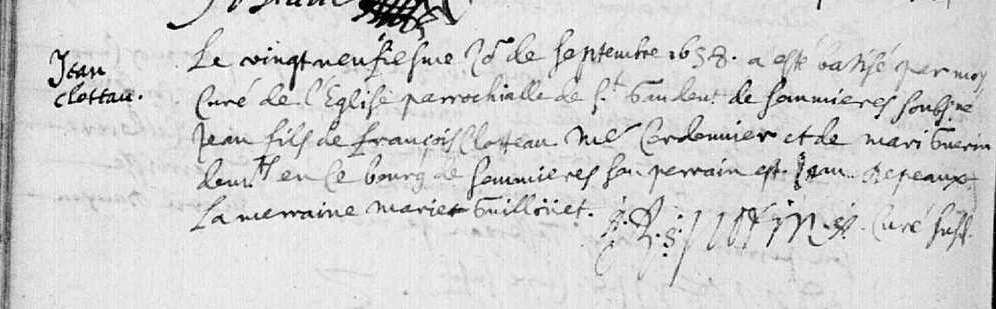 Jean
Clottau.
Le vingt neufiesme Jor de septembre 1658. a esté batisé par moy
Curé de l'Eglise parrochialle de St Gaudent de sommieres soubsne
Jean fils de françois Clotteau Me Cordonnier et de mari Guerin
demts en ce bourg de sommieres son perrain est Jean Repeaux
La merraine mariee Guilloüet. Curé susd.